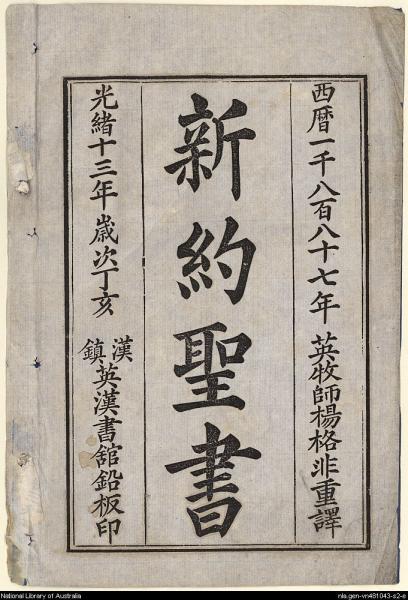 西曆一千八百八十七年 英牧師楊格非重譯
新約聖書
光緒十三年歲次丁亥 漢鎮英漢書館鉛板印
National Library of Australia
nla.gen-vn481043-s2-e